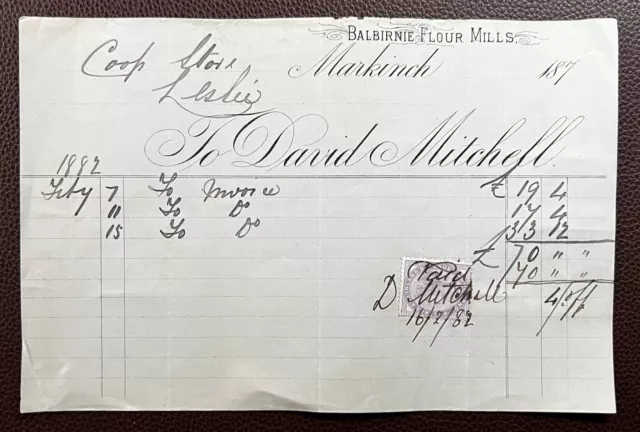 BALBIRNIE FLOUR MILLS,
Coop Store Markinch 187
Leslie
To David Mitchell.
1882
Feby 7 To Invoice £ 19 4
11 To Do 17 4
15 To Do 33 12
£ 70 " "
Paid 70 " "
D Mitchell
16/2/82